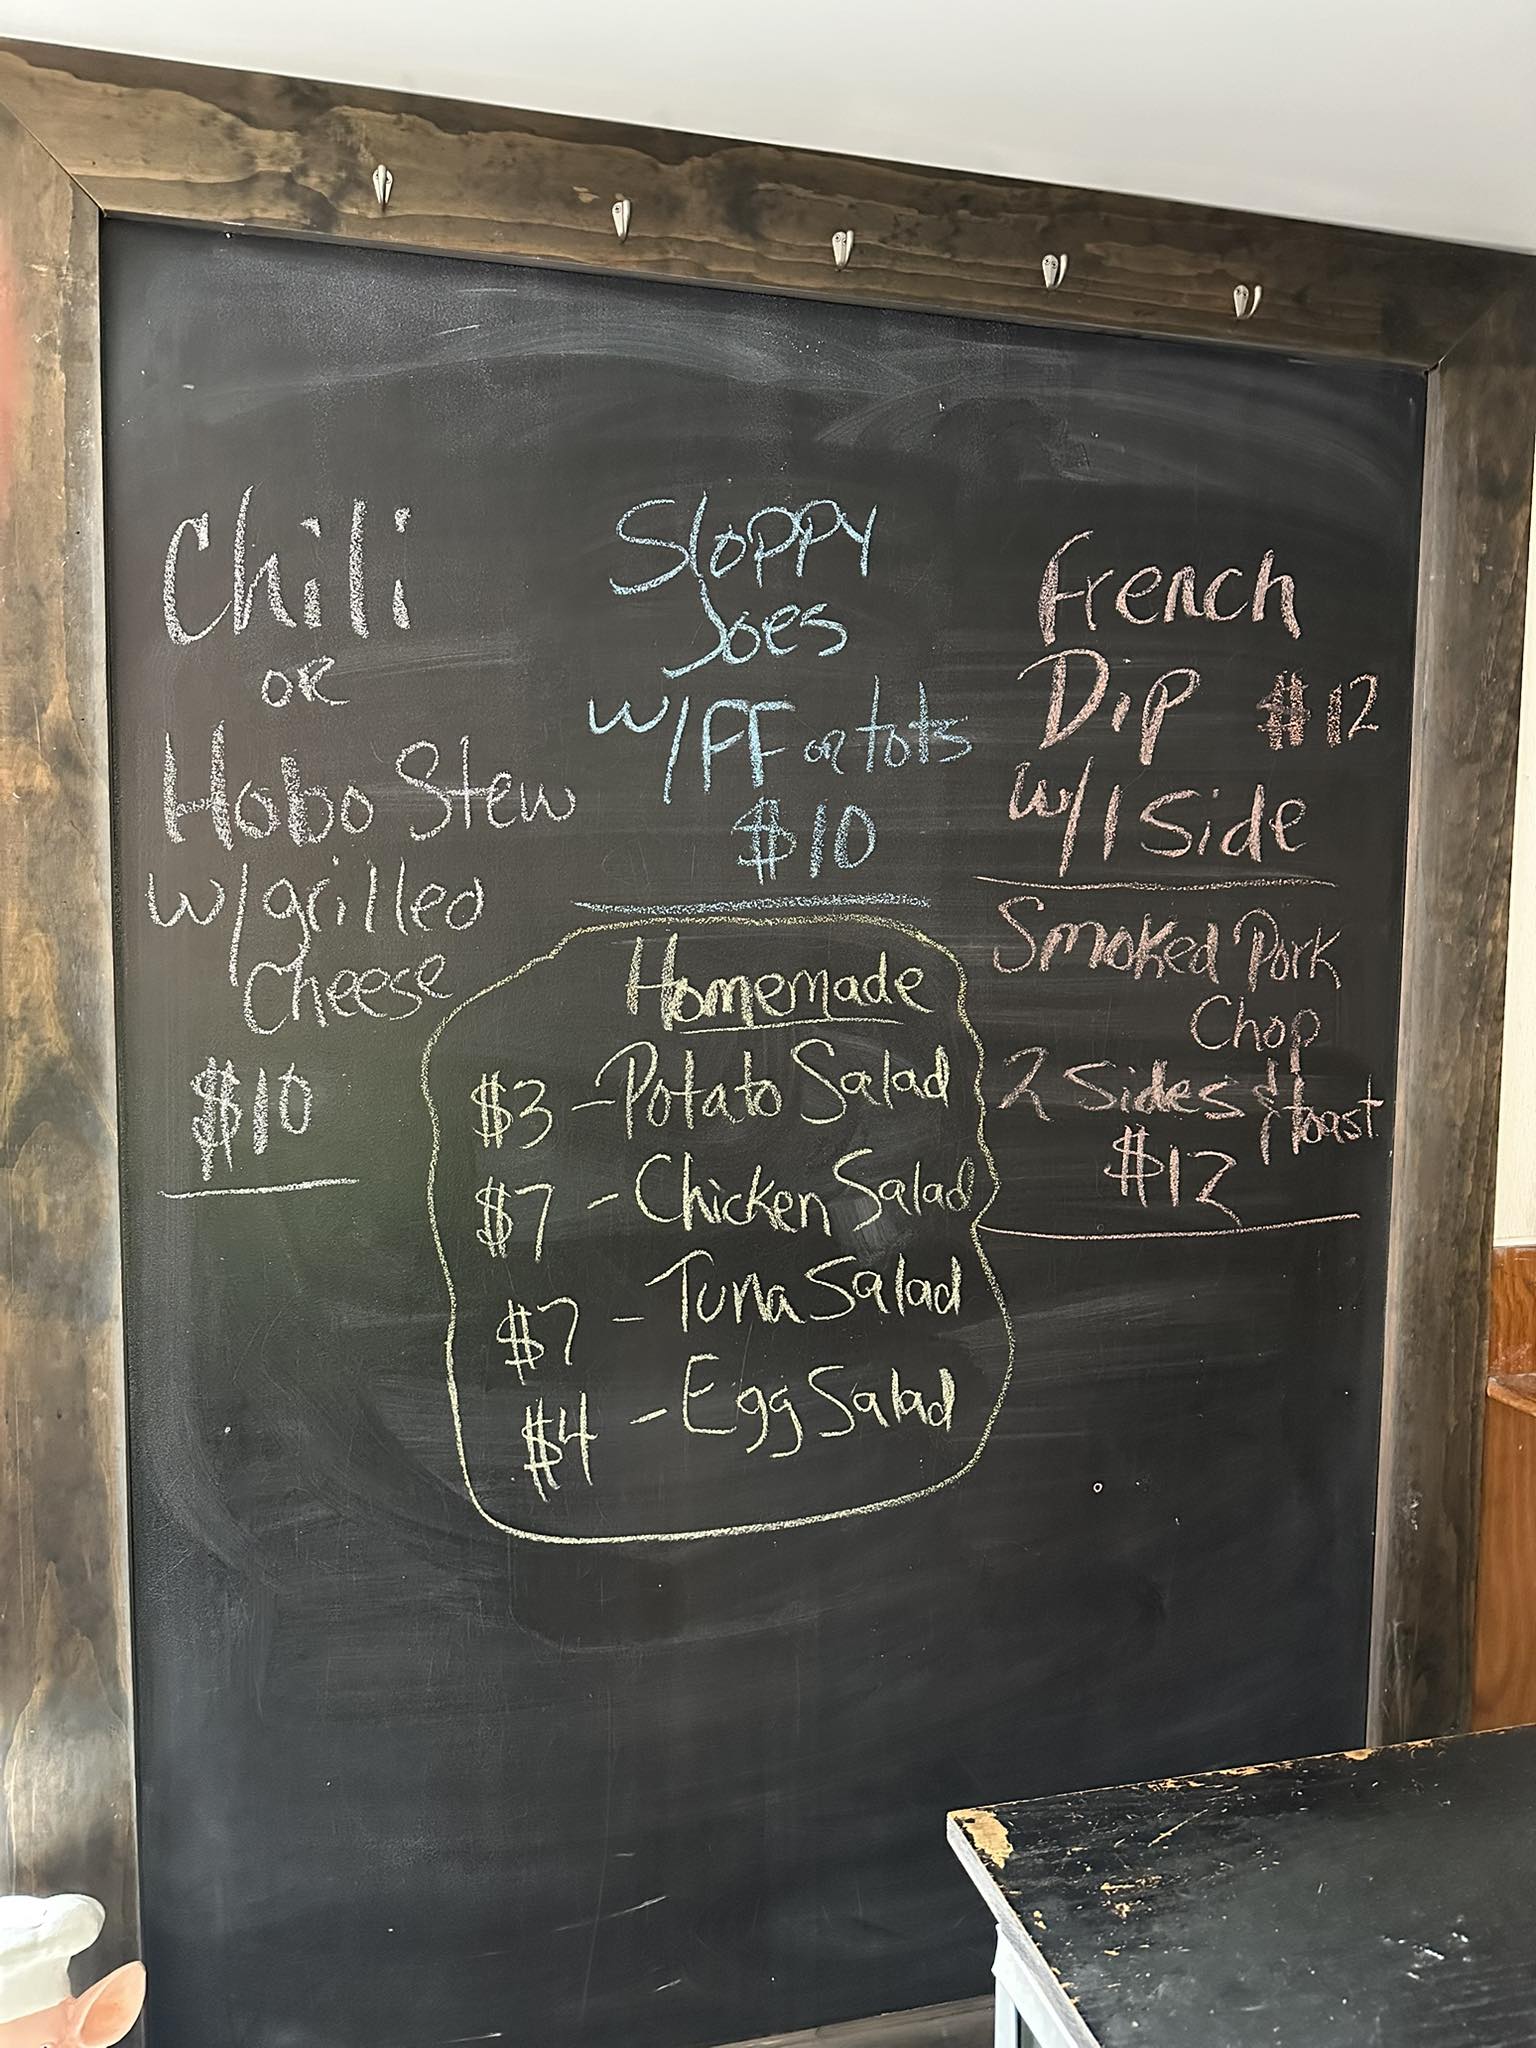 Chili
or
Hobo Stew
w/grilled
Cheese
$10
Sloppy
Joes
w/FF or tots
$10
Homemade
$3 - Potato Salad
$7 - Chicken Salad
$7 - Tuna Salad
$4 - Egg Salad
French
Dip $12
w/1 Side
Smoked Pork
Chop
2 Sides & toast
$12